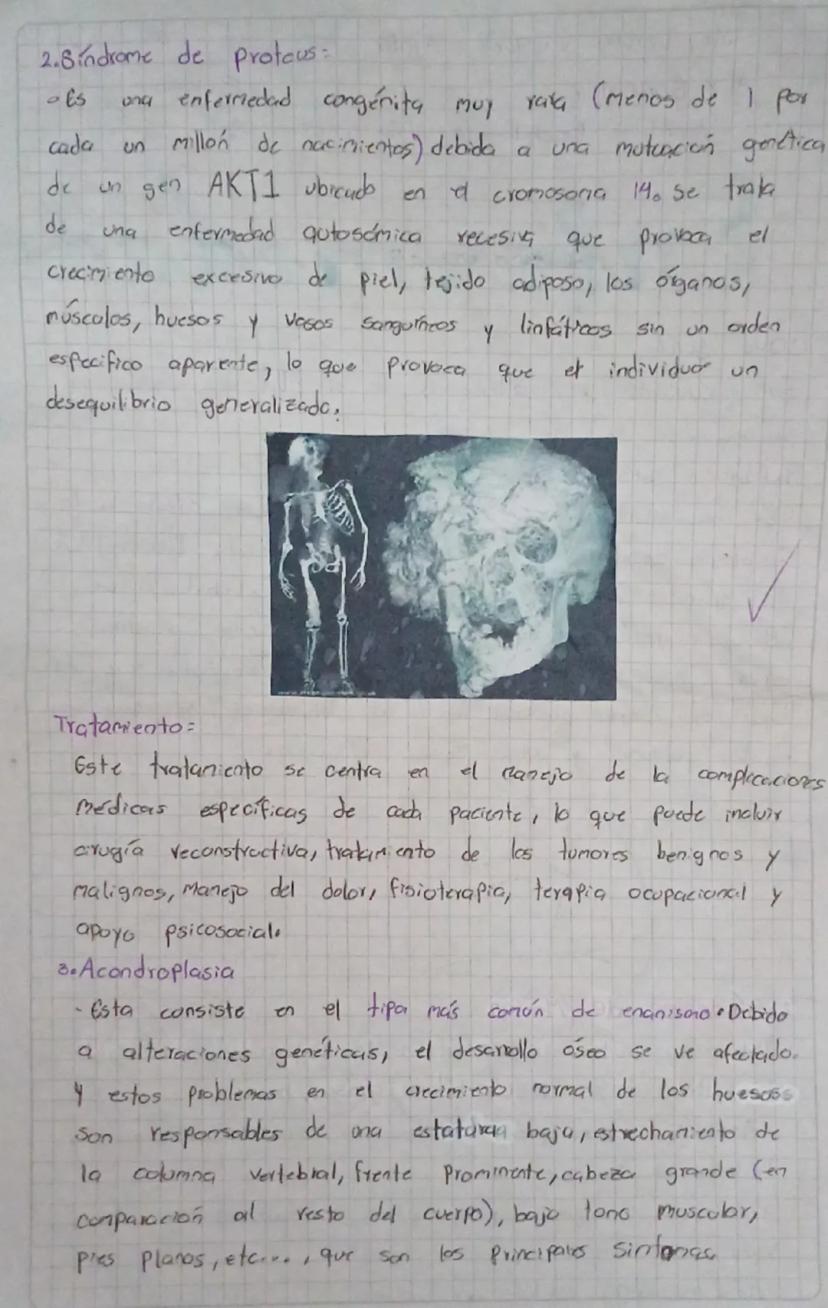 2. Síndrome de proteus:
• Es una enfermedad congénita muy rara (menos de 1 por
cada un millón de nacimientos) debida a una mutación genética
de un gen AKT1 ubicado en el cromosoma 14. se trata
de una enfermedad autosómica recesiva que provoca el
crecimiento excesivo de piel, tejido adiposo, los órganos,
músculos, huesos y vasos sanguíneos y linfáticos sin un orden
especifico aparente, lo que provoca que el individuo un
desequilibrio generalizado.
Tratamiento:
Este tratamiento se centra en el manejo de la complicaciones
médicas específicas de cada paciente, lo que puede incluir
cirugía reconstructiva, tratamiento de los tumores benignos y
malignos, manejo del dolor, fisioterapia, terapia ocupacional y
apoyo psicosocial.
3. Acondroplasia
- Esta consiste en el tipo más común de enanismo. Debido
a alteraciones genéticas, el desarrollo óseo se ve afectado.
y estos problemas en el crecimiento normal de los huesos
son responsables de una estatura baja, estrechamiento de
la columna vertebral, frente prominente, cabeza grande (en
comparación al resto del cuerpo), bajo tono muscular,
pies planos, etc..., que son los principales síntomas